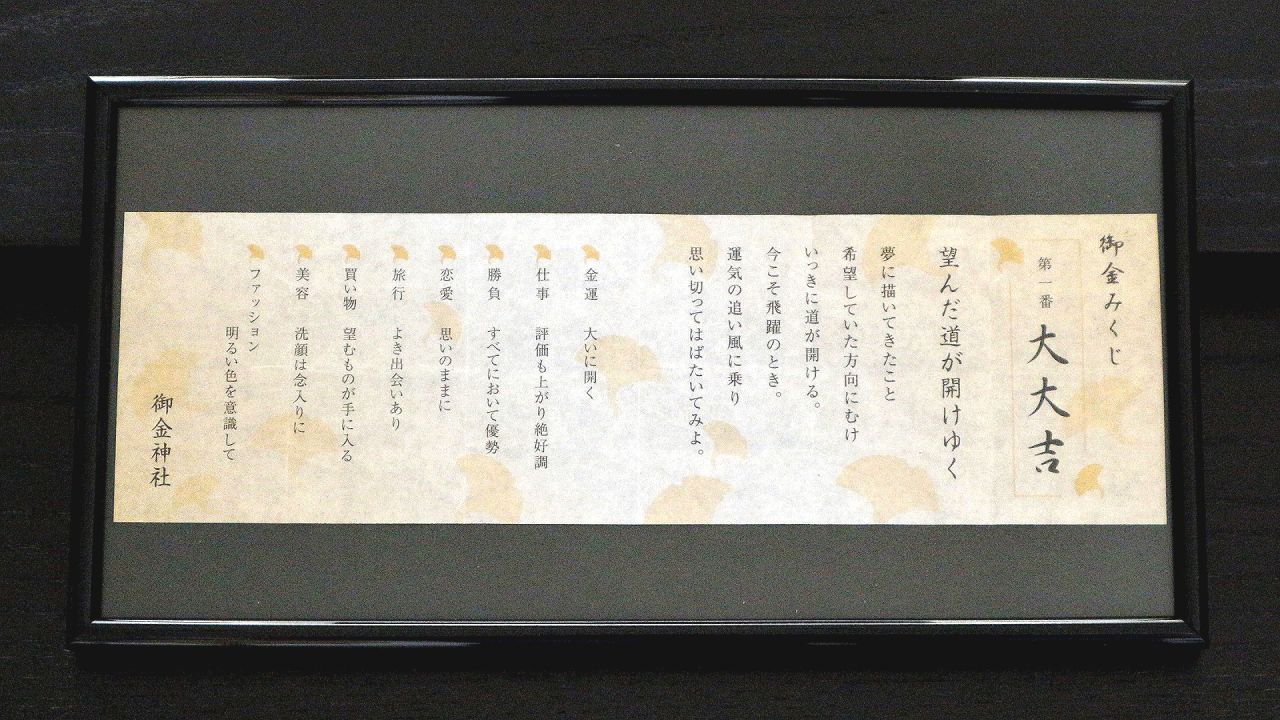 御金みくじ
第一番 大大吉
望んだ道が開けゆく
夢に描いてきたこと
希望していた方向にむけ
いっきに道が開ける。
今こそ飛躍のとき。
運気の追い風に乗り
思い切ってはばたいてみよ。
金運 大いに開く
仕事 評価も上がり絶好調
勝負 すべてにおいて優勢
恋愛 思いのままに
旅行 よき出会いあり
買い物 望むものが手に入る
美容 洗顔は念入りに
ファッション
明るい色を意識して
御金神社